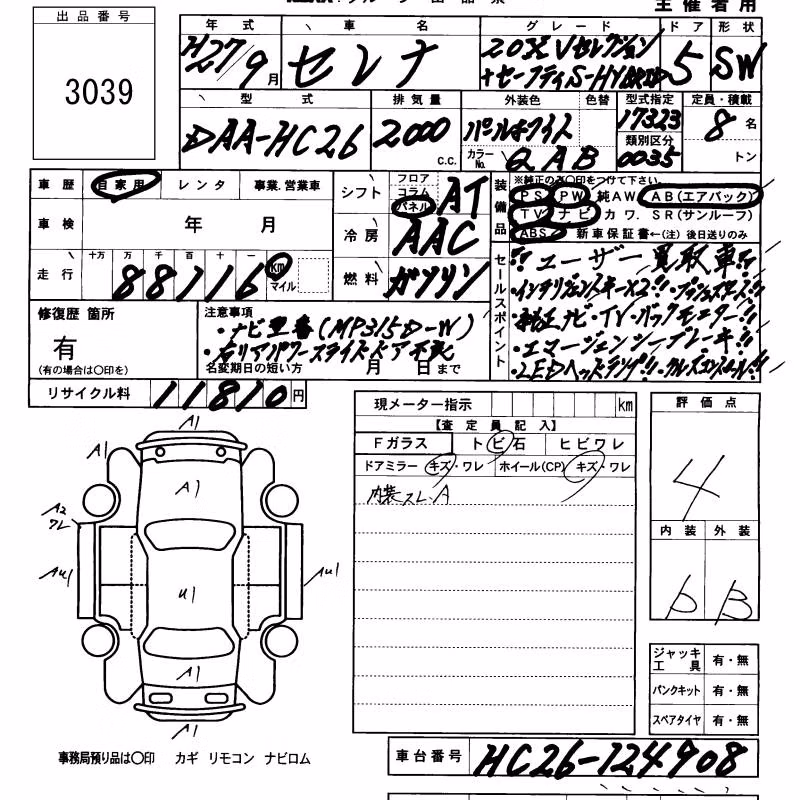 主催者用
出品番号
3039
年式 車名 グレード ドア 形状
H27/9月 セレナ 20X Vセレクション +セーフティS-HYBRID 5 SW
型式 排気量 外装色 色替 型式指定 定員・積載
DAA-HC26 2000 c.c. パールホワイト 17323 8名
カラーNo. QAB 類別区分 0035 トン
車歴 自家用 レンタ 事業.営業車
シフト フロア コラム パネル AT
装備品 ※純正のみ〇印をつけて下さい。
PS PW 純AW AB(エアバック)
TV ナビ カワ. SR(サンルーフ)
ABS 新車保証書←(注)後日送りのみ
車検 年 月
冷房 AAC
走行 十万 万 千 百 十 一
88716 km マイル
燃料 ガソリン
セールスポイント
!!ユーザー買取車!!
・インテリジェントキー×2!!・プッシュスタート!!
・純正ナビ・TV・バックモニター!!
・エマージェンシーブレーキ!!
・LEDヘッドランプ!!・クルーズコントロール!!
修復歴 箇所
有
(有の場合は〇印を)
注意事項
・ナビ型番(MP315D-W)
・右リアパワースライドドア不良
名変期日の短い方 月 日まで
リサイクル料 11810円
現メーター指示 km
【査定員記入】
Fガラス トビ石 ヒビワレ
ドアミラー キズ・ワレ ホイール(CP) キズ・ワレ
内装スレ、A
評価点
4
内装 外装
B
A1
A1
A1
A2
ワレ
AU1
U1
AU1
A1
A1
ジャッキ工具 有・無
パンクキット 有・無
スペアタイヤ 有・無
事務局預り品は〇印 カギ リモコン ナビロム
車台番号 HC26-124908